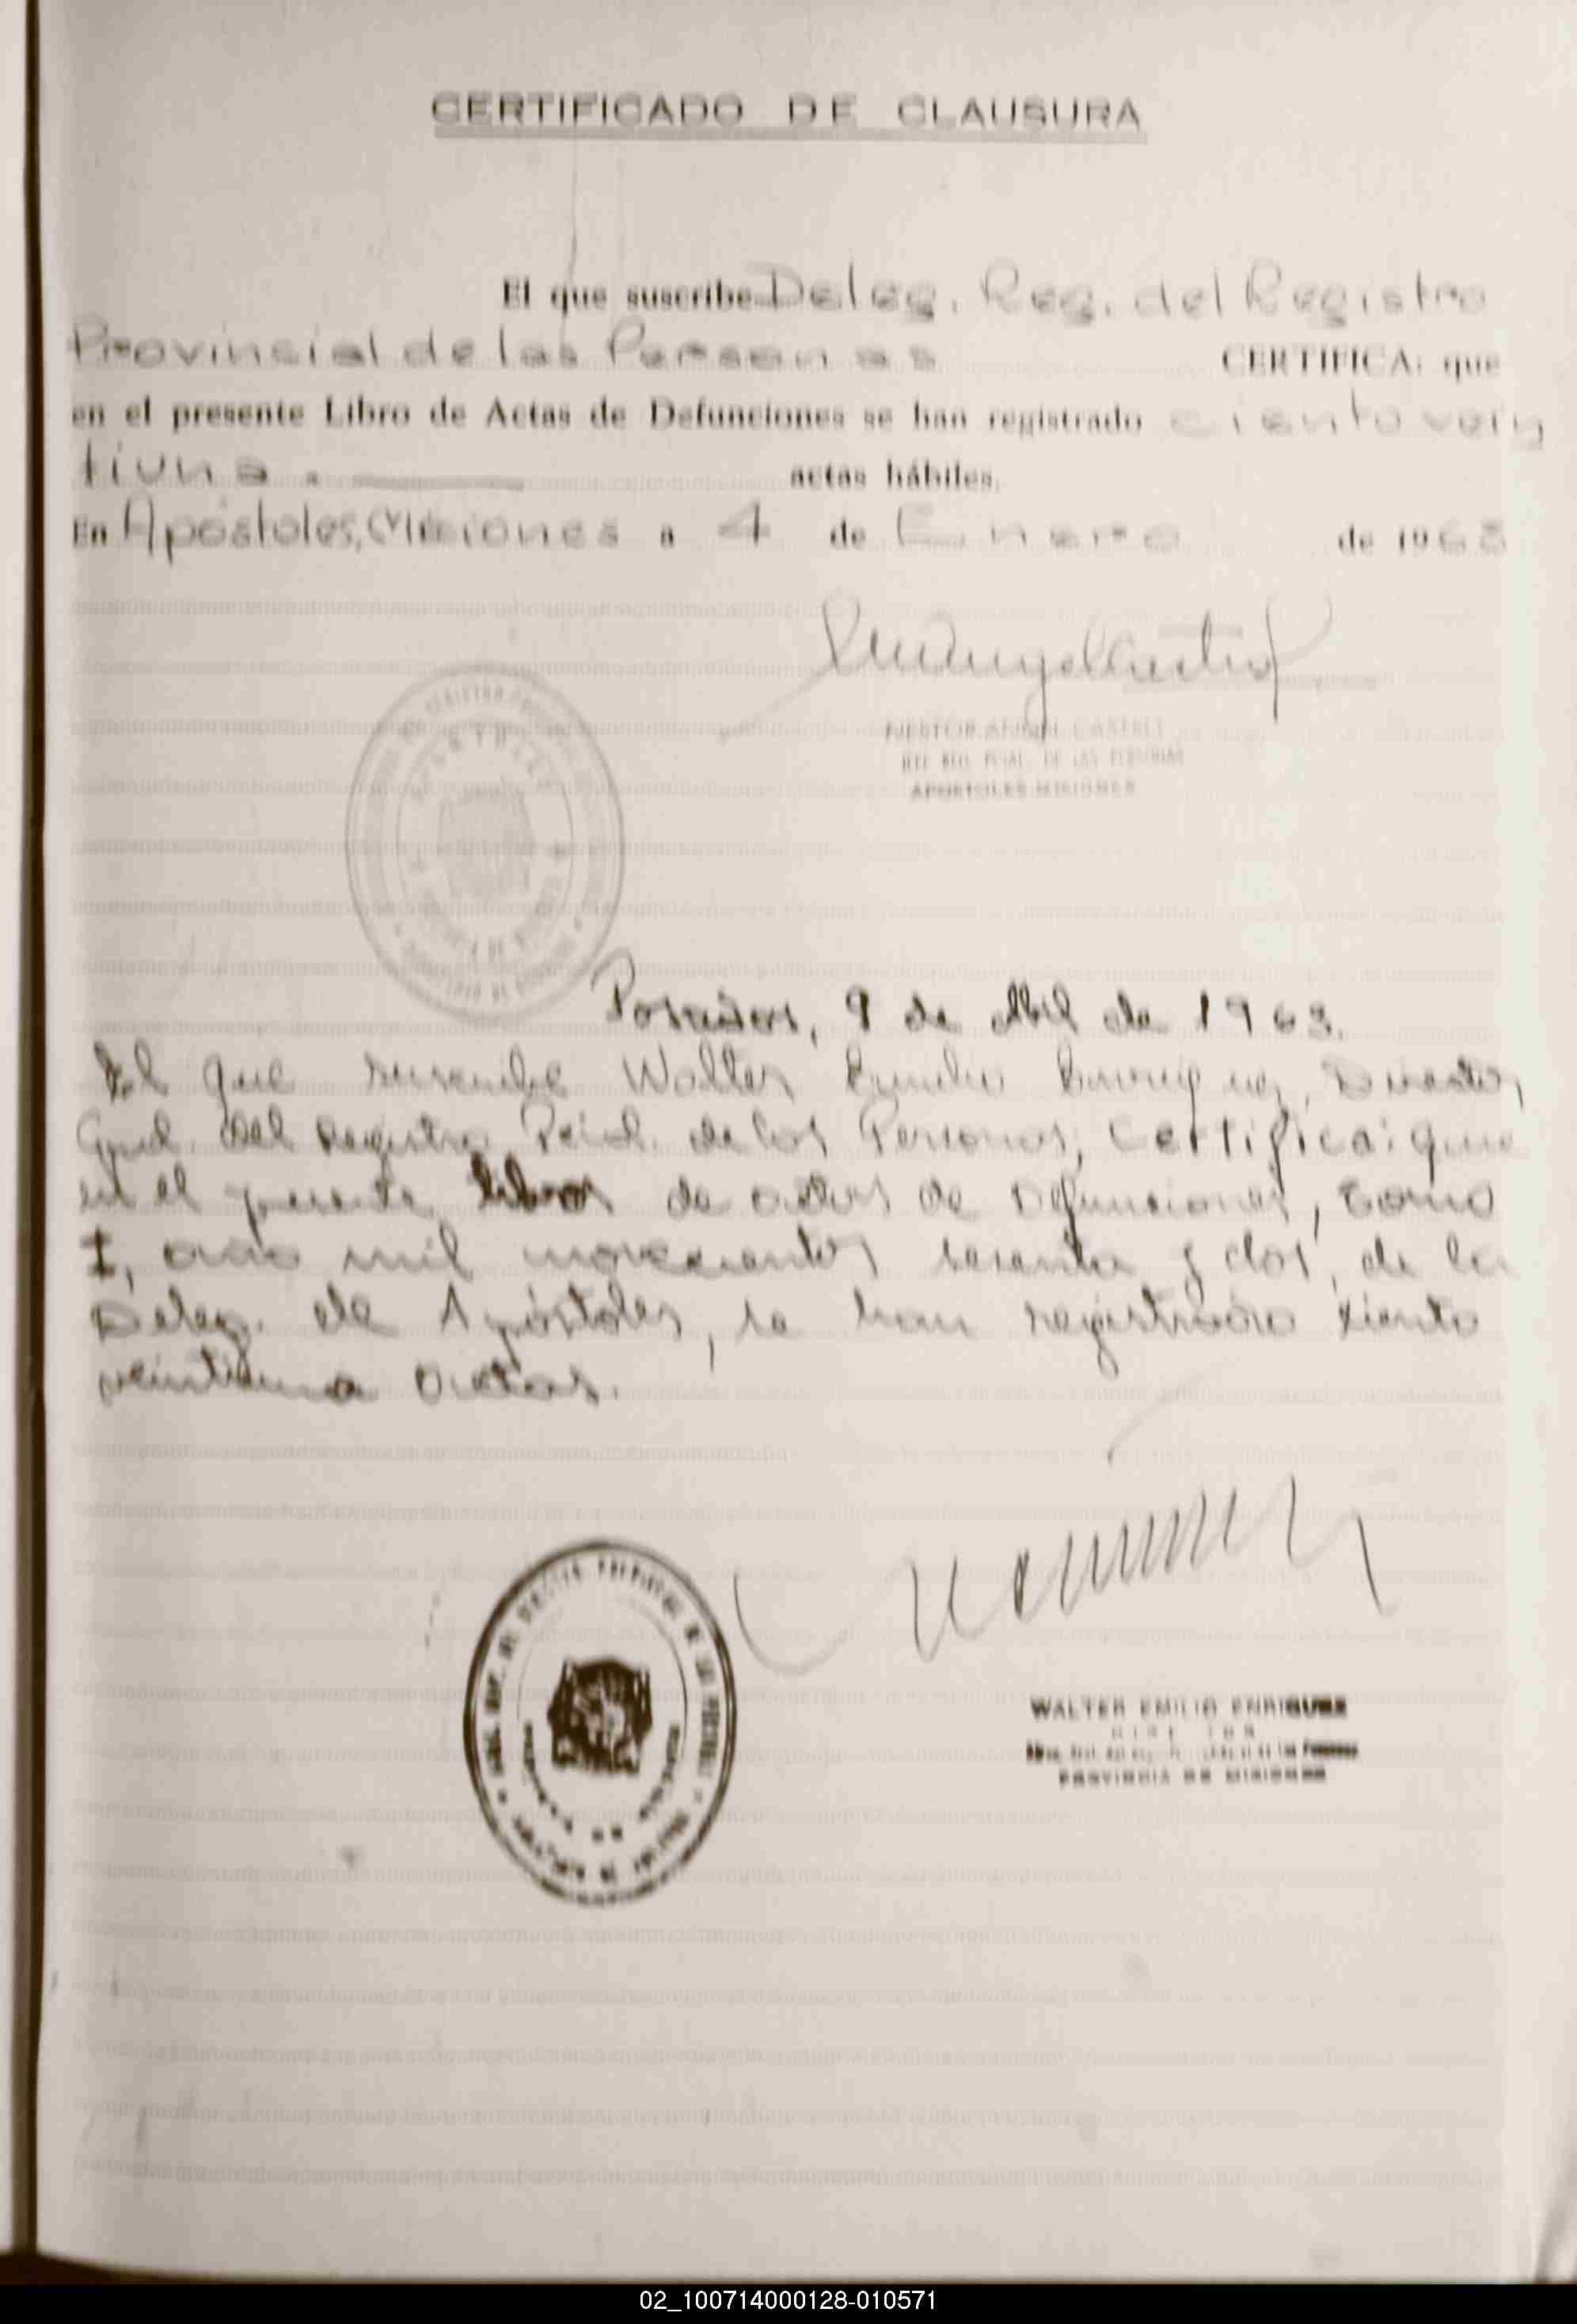 CERTIFICADO DE CLAUSURA
El que suscribe Deleg. Reg. del Registro
Provincial de las Personas CERTIFICA: que
en el presente Libro de Actas de Defunciones se han registrado ciento vein
tiuna. actas hábiles.
En Apóstoles, Misiones a 4 de Enero de 1963
NESTOR ANGEL
REG. PCIAL. DE LAS PERSONAS
APOSTOLES MISIONES
Posadas, 9 de Abril de 1963.
El que suscribe Walter Emilio Enriquez, Director
Gral. del Registro Pcial. de las Personas, Certifica: que
en el presente libros de actas de Defunciones, tomo
I, año mil novecientos sesenta y dos, de la
Deleg. de Apóstoles, se han registrado ciento
veintiuna actas.
WALTER EMILIO ENRIQUEZ
PROVINCIA DE MISIONES
02_100714000128-010571